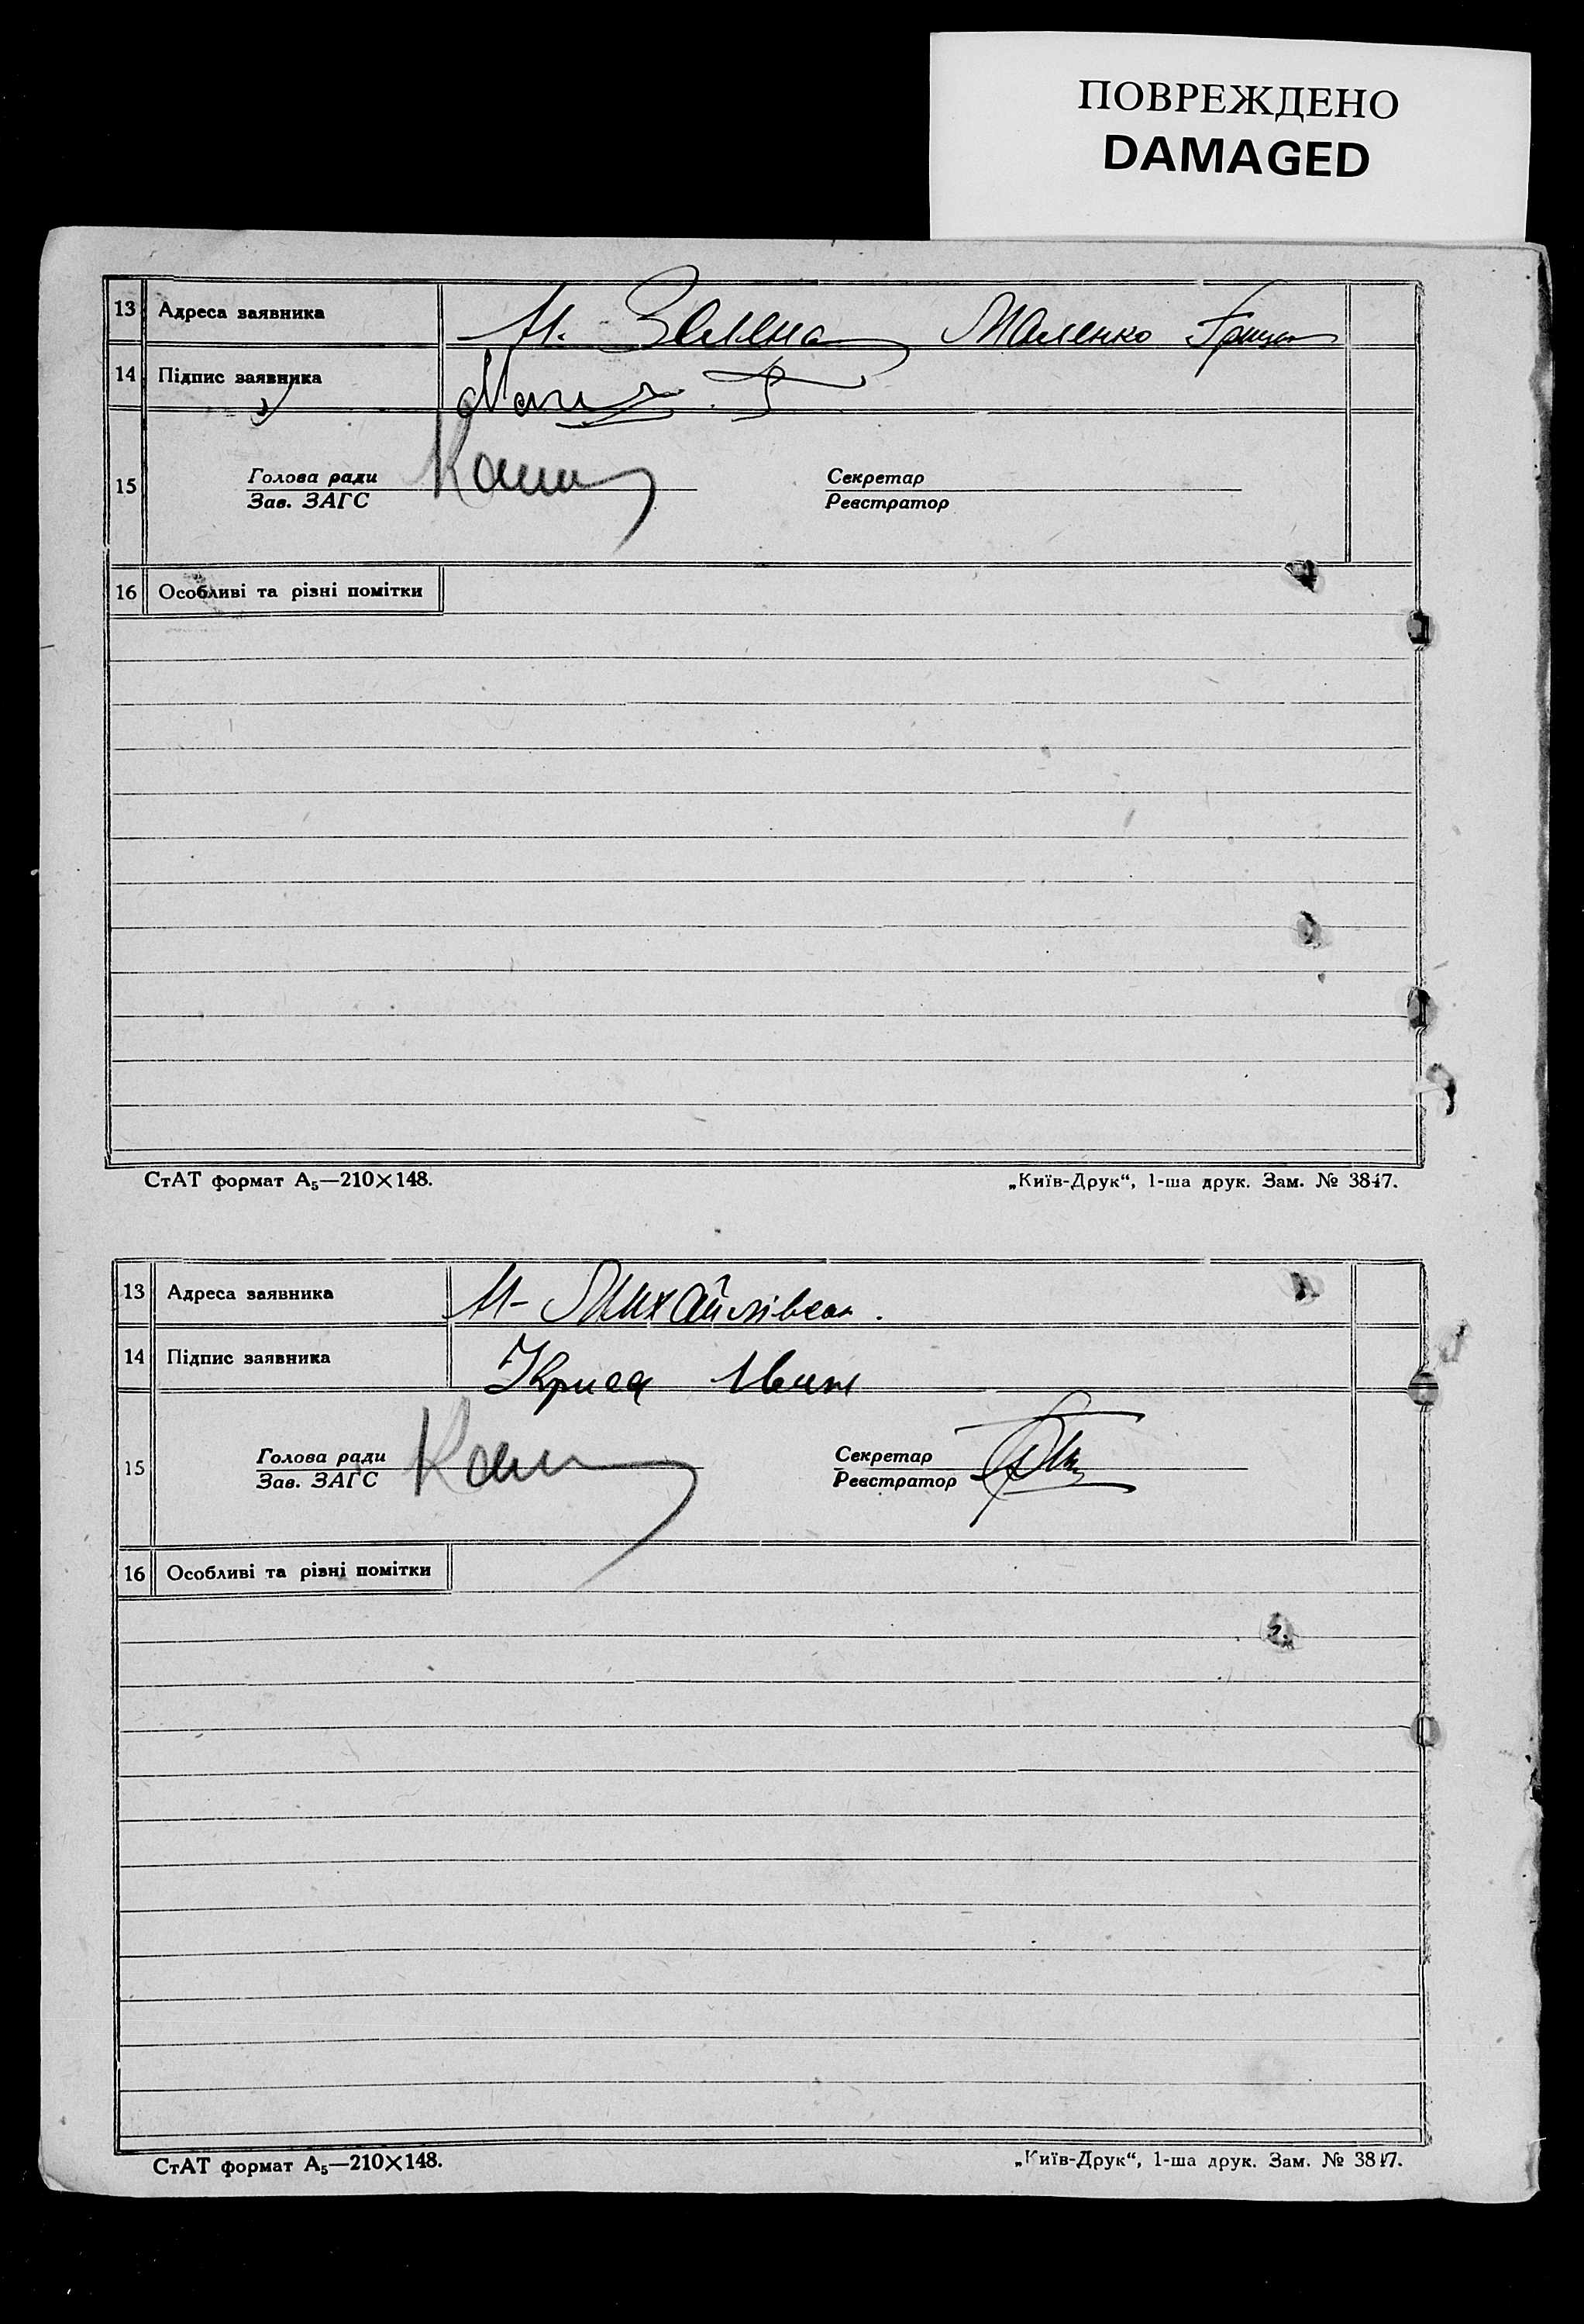 ПОВРЕЖДЕНО
DAMAGED
13 Адреса заявника М. Зелена Маленко Грицьк
14 Підпис заявника
15 Голова ради Секретар
Зав. ЗАГС Реєстратор
16 Особливі та різні помітки
СтАТ формат А₅—210×148. „Київ-Друк“, 1-ша друк. Зам. № 3847.
13 Адреса заявника М- Михайлівсак.
14 Підпис заявника Криса Іван
15 Голова ради Секретар
Зав. ЗАГС Реєстратор
16 Особливі та різні помітки
СтАТ формат А₅—210×148. „Київ-Друк“, 1-ша друк. Зам. № 3847.